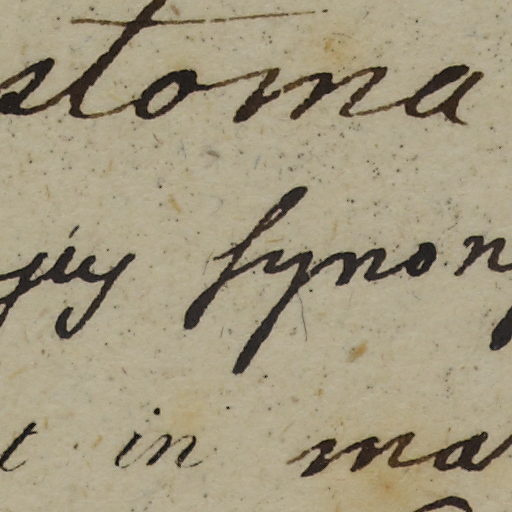 stoma
jĳ synon
t in ma